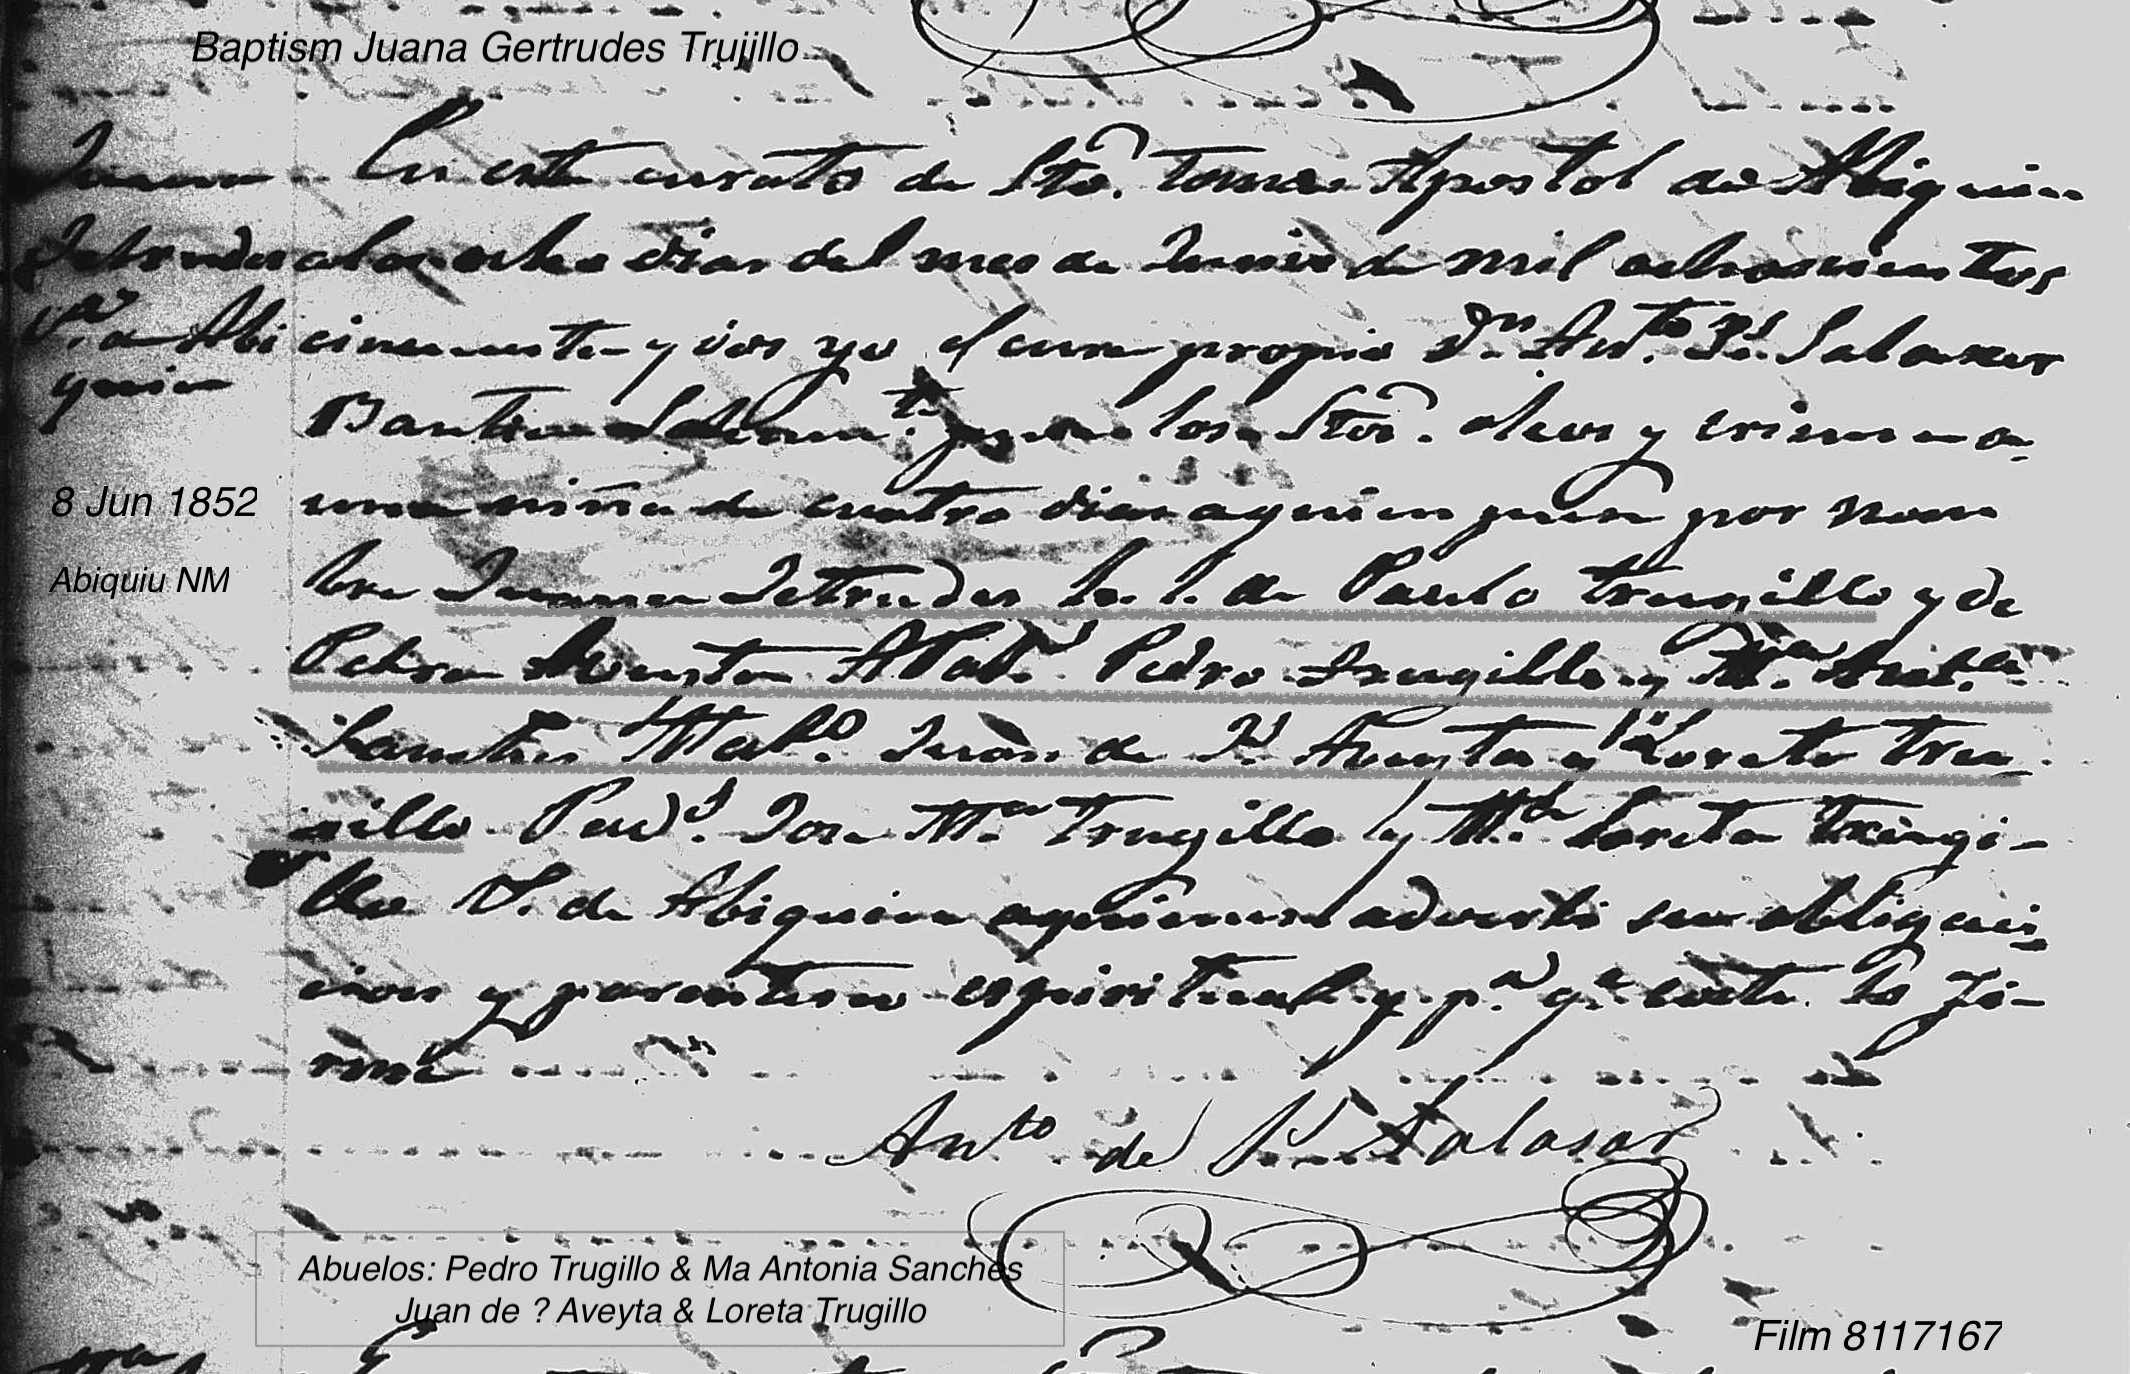 Baptism Juana Gertrudes Trujillo
Juana
Jetrudes
Va. a Abi
quiu
En este curato de Sto. Tomas Apostol de Abiquiu
a los ocho dias del mes de Junio de mil ochosientos
cincuenta y dos yo el cura propio Dn. Anto. Js. Salasar
Bautise Solemnte. puse los Stos. oleos y crisma a
una niña de cuatro dias a quien puse por nom
bre Juana Jetrudes h. l. de Paulo trugillo y de
Petra Aveyta APats. Pedro trugillo y Ma. Anta.
Sanches Mato. Juan de Js. Aveyta y Loreta tru
gillo Pads. Jose Ma. Trugillo y Ma. Loreta Trugi-
llo V. de Abiquiu a quienes adverti su obliga
cion y parentesco espiritual y pa. qe. coste lo fi-
rmé
Anto de Js Salasar
8 Jun 1852
Abiquiu NM
Abuelos: Pedro Trugillo & Ma Antonia Sanches
Juan de ? Aveyta & Loreta Trugillo
Film 8117167